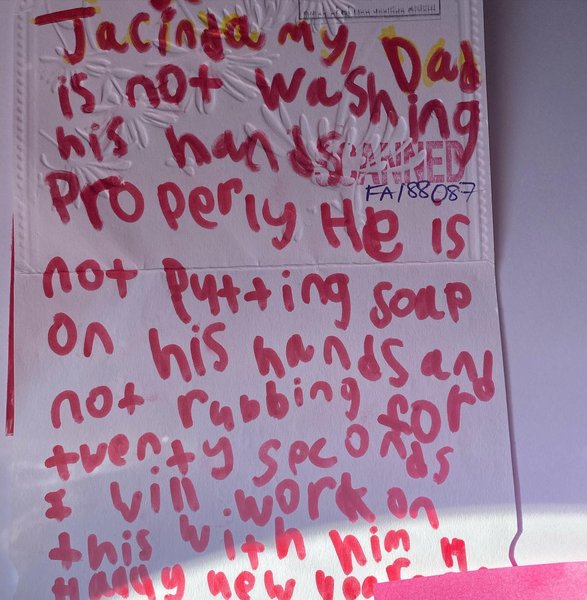 Jacinda my, Dad
is not washing
his hands
SCANNED
FA/88087
Properly He is
not putting soap
on his hands and
not rubbing for
twenty seconds
I will work on
this with him
Happy new year